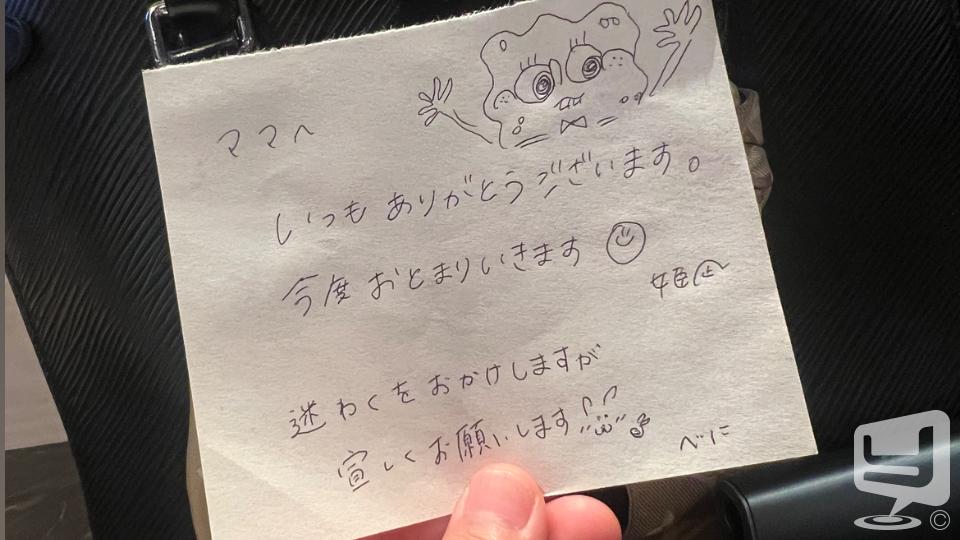 ママへ
いつも ありがとうございます。
今度 おとまりいきます
姫
迷わくを おかけしますが
宜しく お願いします
べに
©